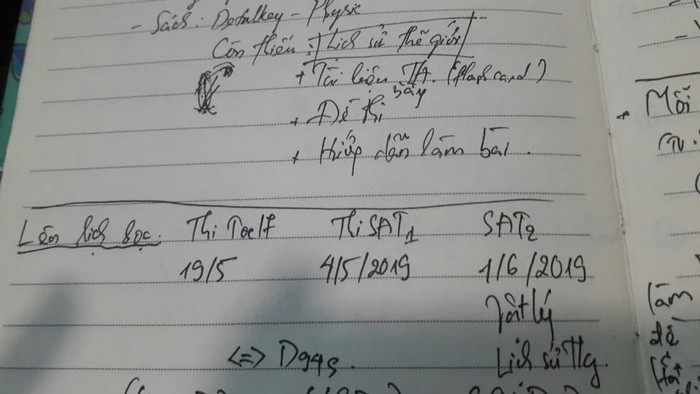 - Sách: Detalkey - Physic
Còn thiếu: Lịch sử thế giới
+ Tài liệu TA. (flash card)
+ Đề thi
+ Hướng dẫn làm bài.
Lên lịch học: Thi Toelf Thi SAT1 SAT2
19/5 4/5/2019 1/6/2019
Vật lý
<=> Lịch sử Tg.
+ Mỗi
làm
đề